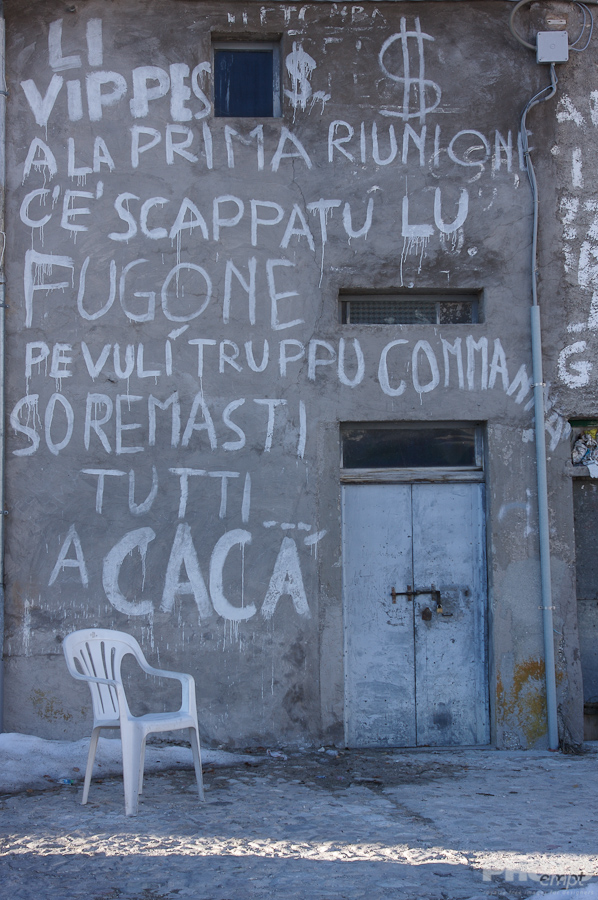 LI $ $
VIPPES
A LA PRIMA RIUNIONE
C'E' SCAPPATU LU
FUGONE
PE VULÍ TRUPPU COMMANNA
SO REMASTI
TUTI
A CACÀ